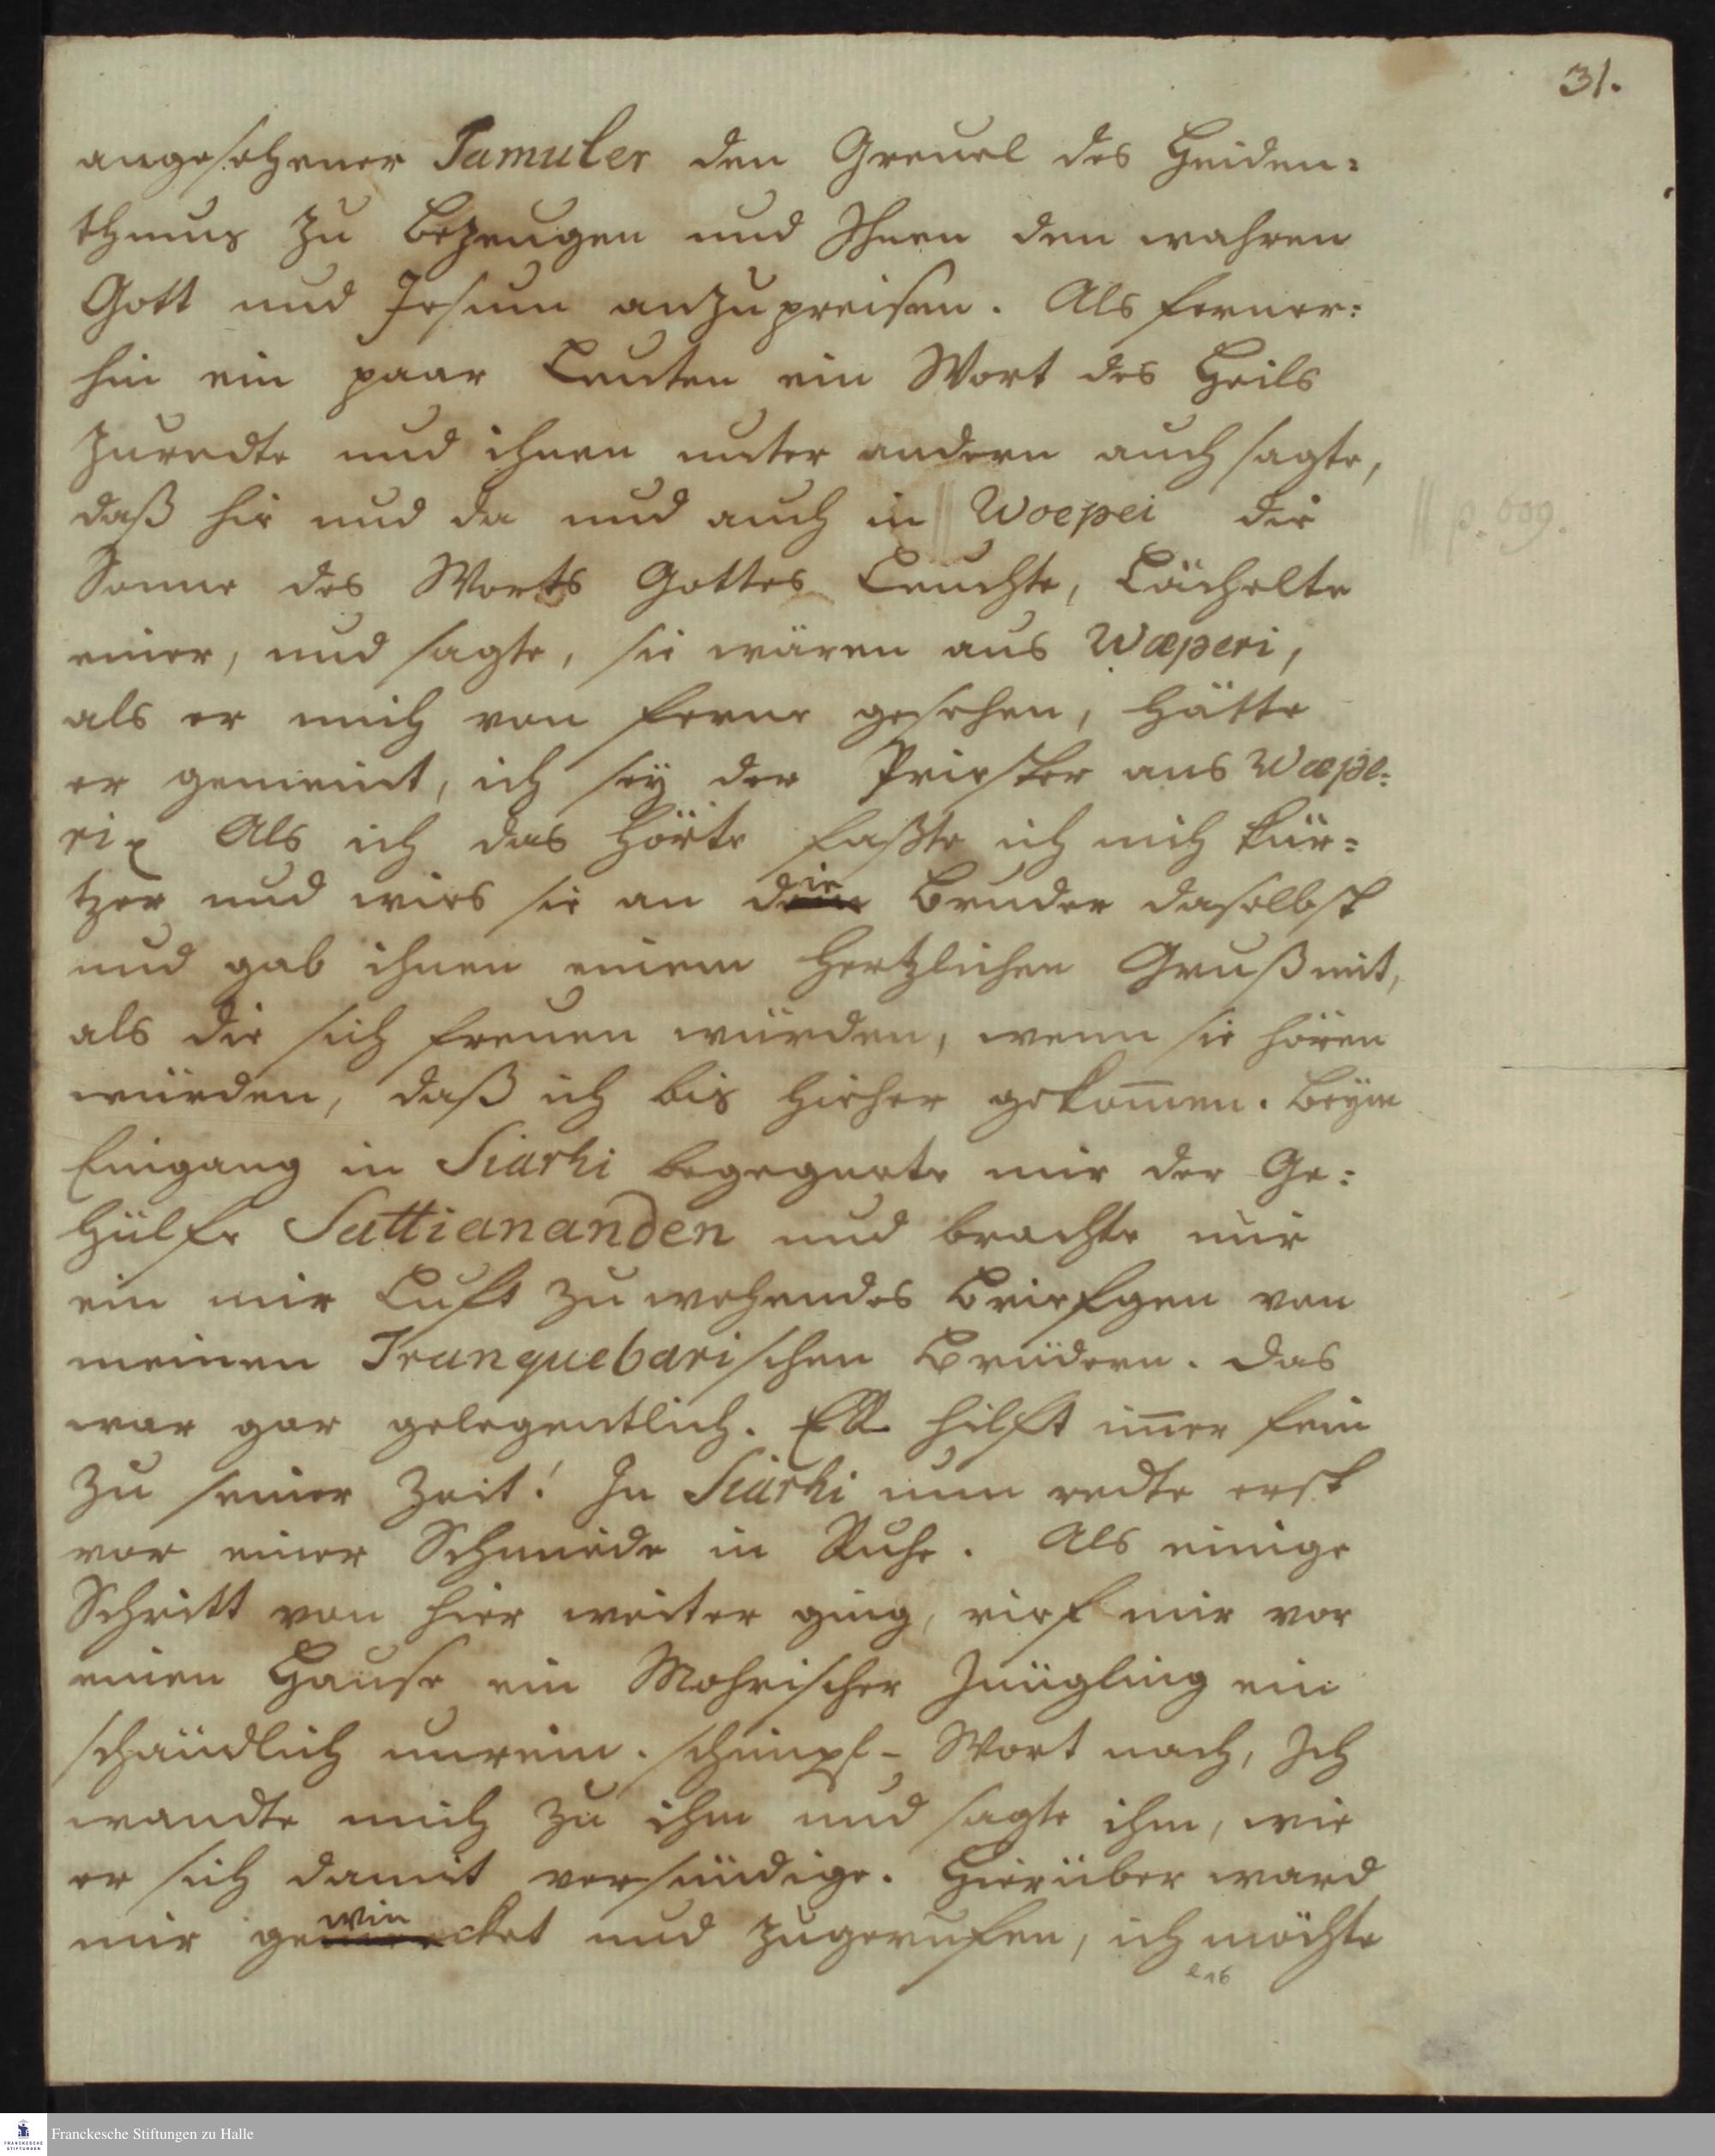 31.
angesehener Tamuler den Greuel des Heiden=
thums zu bezeugen und Ihnen den wahren
Gott und Jesum anzupreisen. Als ferner=
hin ein paar Leuten ein Wort des Heils
zuredte und ihnen unter andern auch sagte,
daß hie und da und auch in || Woepei die
|| p. 609.
Sonne des Worts Gottes Leuchte, Lächelte
einer, und sagte, sie wären aus Wæperi,
als er mich von ferne gesehen, hätte
er gemeint, ich sey der Priester aus Wæpe=
ri. Als ich das hörte faßte ich mich kür=
tzer und wies sie an die Bruder daselbst
und gab ihnen einem hertzlichen Gruß mit,
als die sich freuen würden, wenn sie hören
würden, daß ich bis hieher gekom̅en. Beym
Eingang in Siarhi begegnete mir der Ge=
hülfe Sattiananden und brachte mir
ein mir Luft zu wehendes Briefgen von
meinen Tranquebarischen Brüdern. Das
war gar gelegentlich. Er hilft im̅er fein
zu seiner Zeit! In Siarhi nun redte erst
vor einer Schmiede in Ruhe. Als einige
Schritt von hier weiter ging, rief mir vor
einen Hause ein Mohrischer Jüngling ein
schändlich unrein. schimpf- Wort nach, Ich
wandte mich zu ihm und sagte ihm, wie
er sich damit versündige. Hierüber ward
mir gewincket und zugerufen, ich möchte
e16
Franckesche Stiftungen zu Halle
FRANCKESCHE STIFTUNGEN